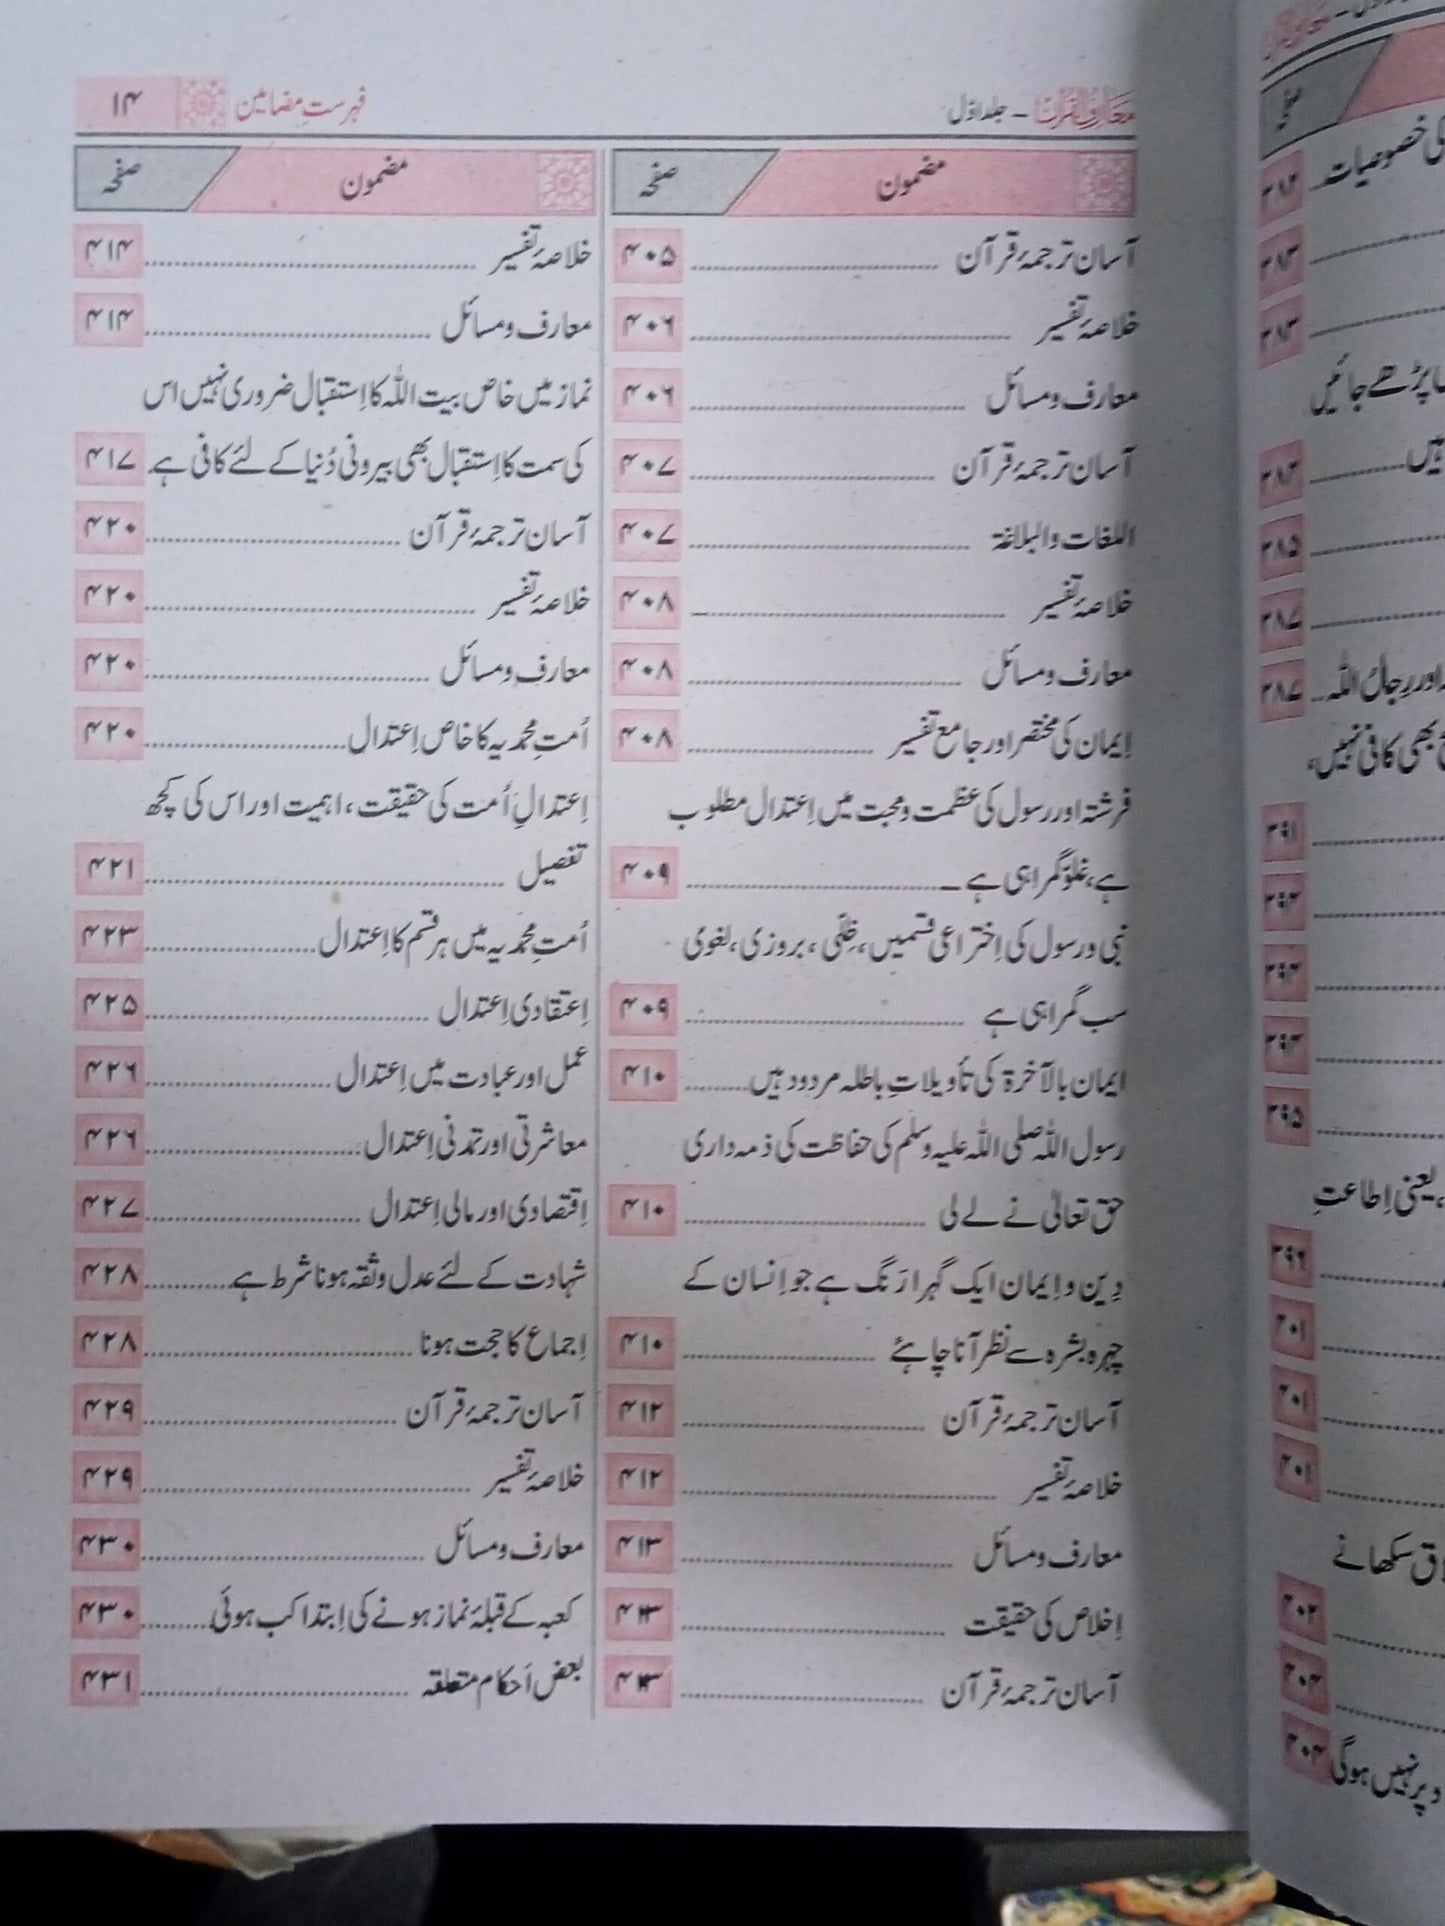 معارف القرآن - جلد اوّل
فہرستِ مضامین
۱۴
مضمون
صفحہ
آسان ترجمۂ قرآن ۴۰۵
خلاصۂ تفسیر ۴۰۶
معارف و مسائل ۴۰۶
آسان ترجمۂ قرآن ۴۰۷
اللغات والبلاغۃ ۴۰۷
خلاصۂ تفسیر ۴۰۸
معارف و مسائل ۴۰۸
اِیمان کی مختصر اور جامع تفسیر ۴۰۸
فرشتہ اور رسول کی عظمت و محبت میں اِعتدال مطلوب
ہے، غلوّ گمراہی ہے ۴۰۹
نبی و رسول کی اِختراعی قسمیں، ظِلّی، بروزی، لغوی
سب گمراہی ہے ۴۰۹
ایمان بالآخرۃ کی تأویلاتِ باطلہ مردود ہیں ۴۱۰
رسول اللہ صلی اللہ علیہ وسلم کی حفاظت کی ذمہ داری
حق تعالیٰ نے لے لی ۴۱۰
دِین و اِیمان ایک گہرا رَنگ ہے جو اِنسان کے
چہرہ بشرہ سے نظر آنا چاہئے ۴۱۰
آسان ترجمۂ قرآن ۴۱۲
خلاصۂ تفسیر ۴۱۲
معارف و مسائل ۴۱۳
اِخلاص کی حقیقت ۴۱۳
آسان ترجمۂ قرآن
مضمون
صفحہ
خلاصۂ تفسیر ۴۱۴
معارف و مسائل ۴۱۴
نماز میں خاص بیت اللہ کا اِستقبال ضروری نہیں اس
کی سمت کا اِستقبال بھی بیرونی دُنیا کے لئے کافی ہے ۴۱۷
آسان ترجمۂ قرآن ۴۲۰
خلاصۂ تفسیر ۴۲۰
معارف و مسائل ۴۲۰
اُمتِ محمدیہ کا خاص اِعتدال ۴۲۰
اِعتدالِ اُمت کی حقیقت، اہمیت اور اس کی کچھ
تفصیل ۴۲۱
اُمتِ محمدیہ میں ہر قسم کا اِعتدال ۴۲۳
اِعتقادی اِعتدال ۴۲۵
عمل اور عبادت میں اِعتدال ۴۲۶
معاشرتی اور تمدنی اِعتدال ۴۲۶
اِقتصادی اور مالی اِعتدال ۴۲۷
شہادت کے لئے عدل و ثقہ ہونا شرط ہے ۴۲۸
اِجماع کا حجت ہونا ۴۲۸
آسان ترجمۂ قرآن ۴۲۹
خلاصۂ تفسیر ۴۲۹
معارف و مسائل ۴۳۰
کعبہ کے قبلۂ نماز ہونے کی اِبتدا کب ہوئی ۴۳۰
بعض اَحکام متعلقہ ۴۳۱
کی خصوصیات ۳۸۲
۳۸۳
۳۸۳
پڑھے جائیں
ہیں ۳۸۴
۳۸۵
۳۸۷
اور رِجالُ اللہ ۳۸۷
بھی کافی نہیں،
۳۹۱
۳۹۲
۳۹۴
۳۹۵
، یعنی اِطاعتِ
۳۹۶
۴۰۱
۴۰۱
۴۰۱
سکھانے
۴۰۲
پر نہیں ہوگی